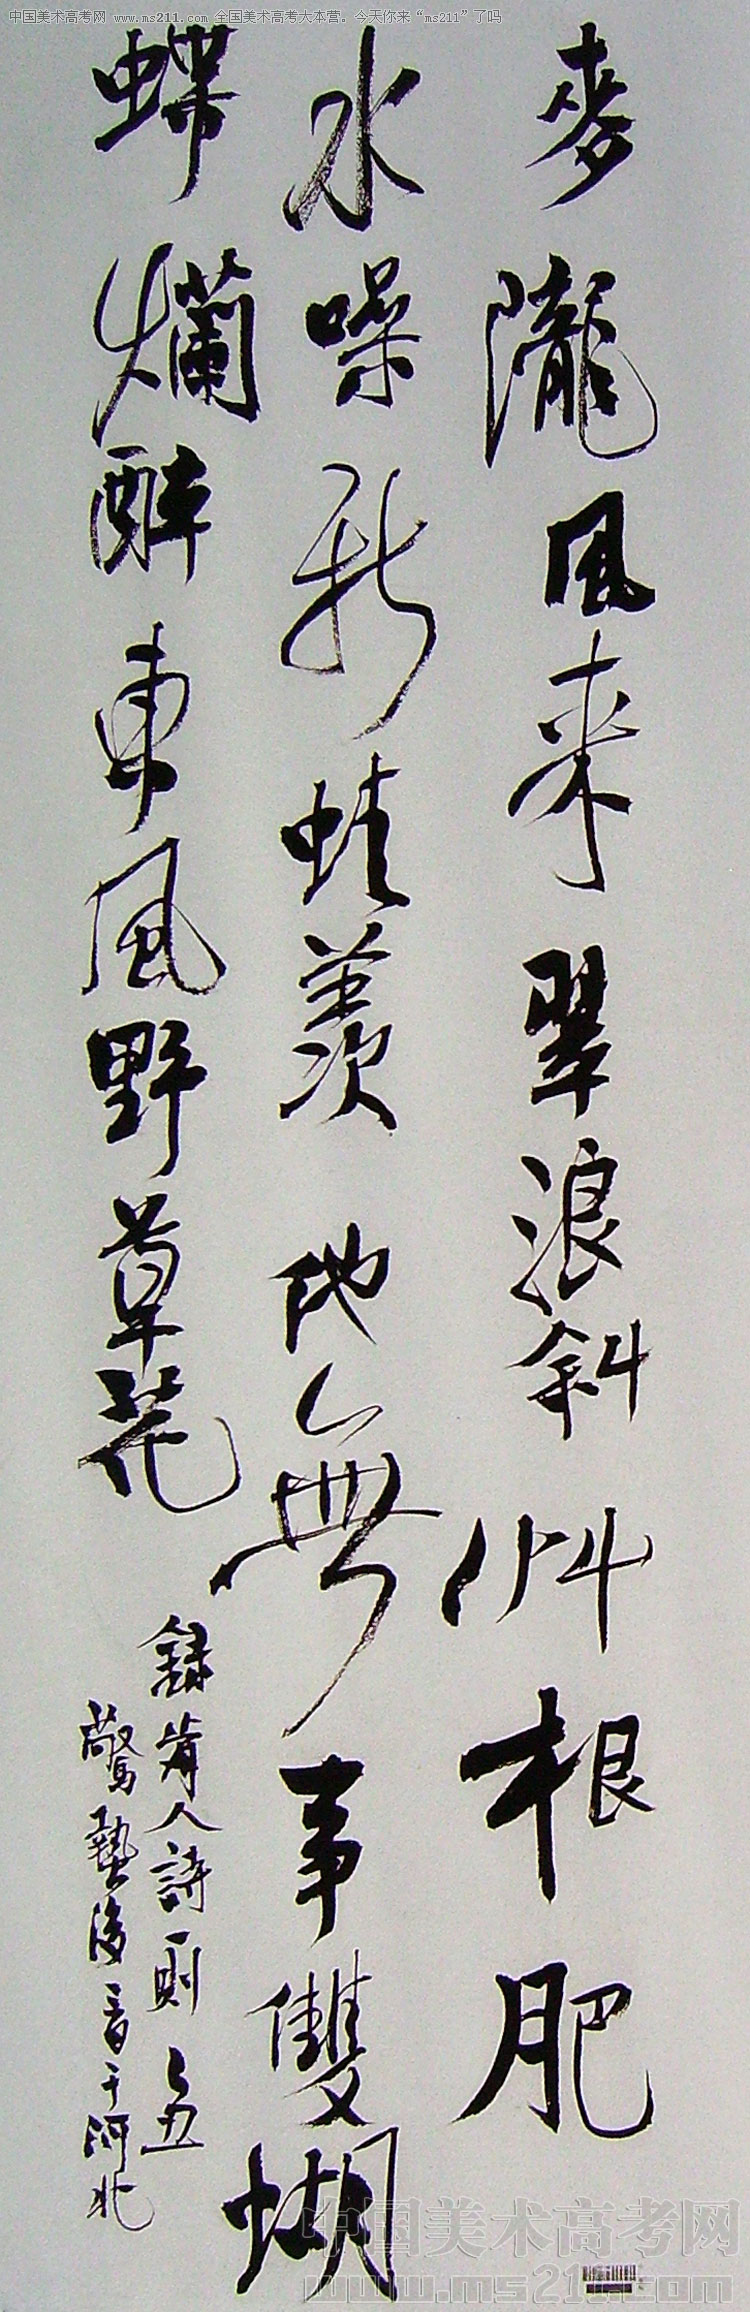 中国美术高考网 www.ms211.com 全国美术高考大本营。今天你来“ms211”了吗
麥隴風來翠浪斜艸根肥
水噪新蛙羨他無事雙蝴
蝶爛醉東風野草花
錄前人詩一則 乙丑
驚蟄後 于河北
中国美术高考网
www.ms211.com